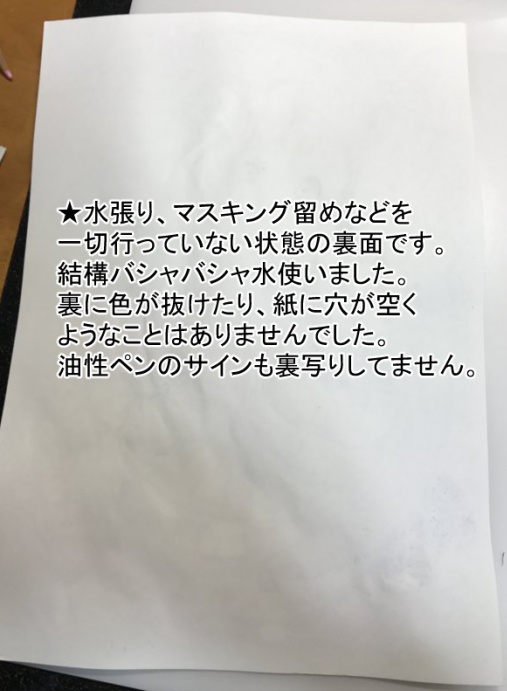 ★水張り、マスキング留めなどを
一切行っていない状態の裏面です。
結構バシャバシャ水使いました。
裏に色が抜けたり、紙に穴が空く
ようなことはありませんでした。
油性ペンのサインも裏写りしてません。